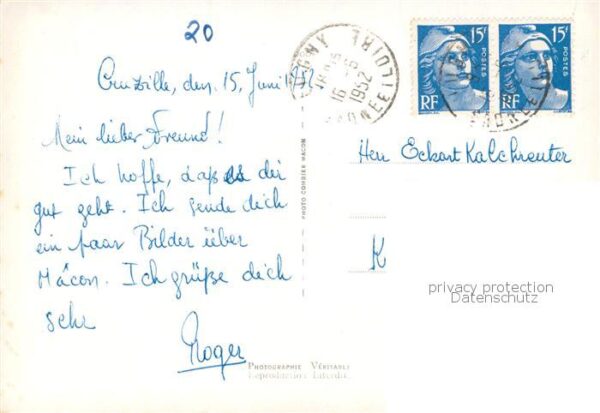 20
Cruzille, den 15. Juni 52
Mein lieber Freund!
Ich hoffe, daß es dir
gut geht. Ich sende dich
ein paar Bilder über
Mâcon. Ich grüße dich
sehr
Roger
16 -6
1952
SAONE ET LOIRE
15f 15f
POSTES POSTES
RF RF
PHOTO COMBIER MACON
Herr Eckart Kalchreuter
K
privacy protection
Datenschutz
PHOTOGRAPHIE VÉRITABLE
Reproduction Interdite